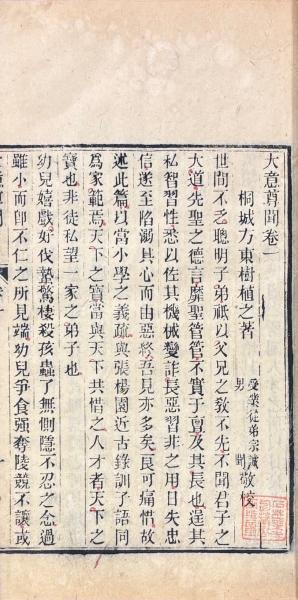 大意尊聞卷一
桐城方東樹植之著
受業從弟宗誠
男聞
敬校
世間不乏聰明子弟祇以父兄之教不先不聞君子之
大道先聖之德言靡聖管管不實于亶及其長也逞其
私智習性悉以佐其機械變詐長惡習非之用日失忠
信遂至陷溺其心而由惡終吾見亦多矣良可痛惜故
述此篇以當小學之義疏與張楊園近古錄訓子語同
爲家範焉天下之寶當與天下共惜之人才者天下之
寶也非徒私望一家之弟子也
幼兒嬉戲好伐蟄驚棲殺孩蟲了無惻隱不忍之念過
雖小而卽不仁之所見端幼兒爭食强奪陵競不讓或